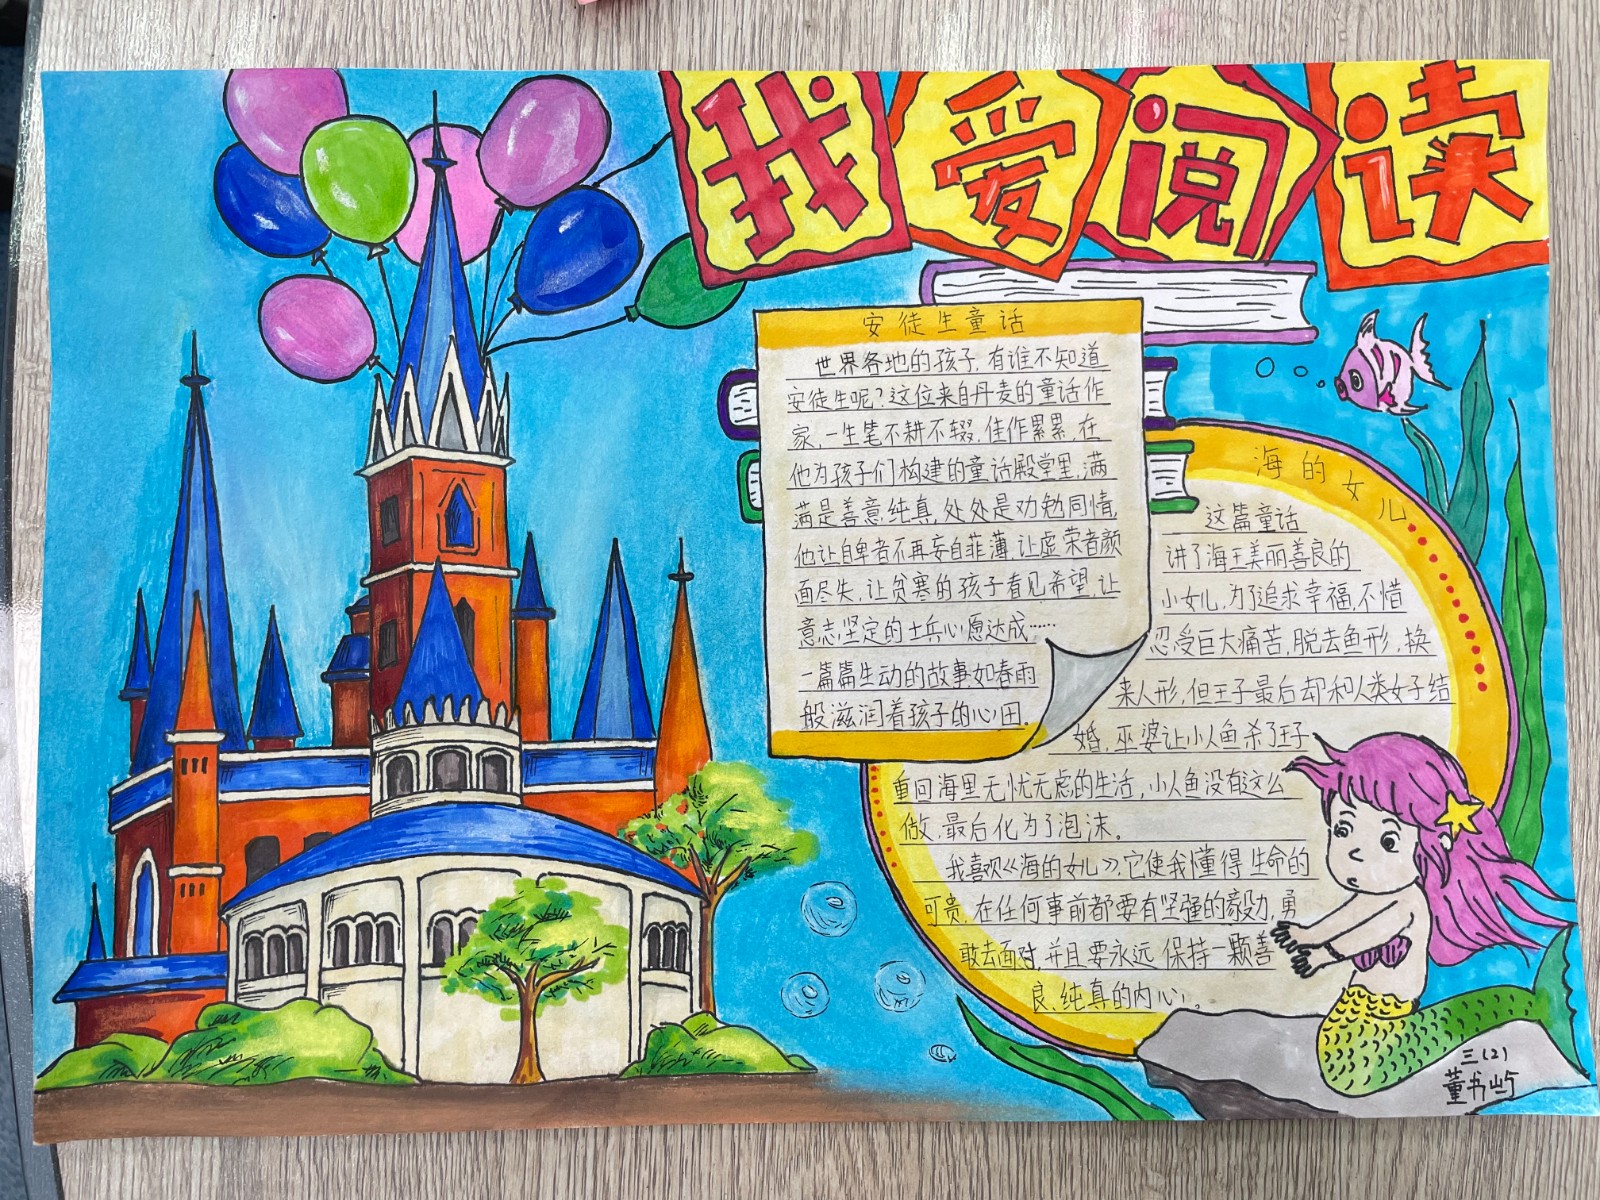 我爱阅读
安徒生童话
世界各地的孩子,有谁不知道
安徒生呢?这位来自丹麦的童话作
家,一生笔不耕不辍,佳作累累,在
他为孩子们构建的童话殿堂里,满
满是善意,纯真,处处是劝勉同情,
他让自卑者不再妄自菲薄,让虚荣者颜
面尽失,让贫寒的孩子看见希望,让
意志坚定的士兵心愿达成……
一篇篇生动的故事,如春雨
般滋润着孩子的心田。
海的女儿
这篇童话
讲了海王美丽善良的
小女儿,为了追求幸福,不惜
忍受巨大痛苦,脱去鱼形,换
来人形,但王子最后却和人类女子结
婚,巫婆让小人鱼杀了王子
重回海里无忧无虑的生活,小人鱼没有这么
做,最后化为了泡沫。
我喜欢《海的女儿》,它使我懂得生命的
可贵,在任何事前都要有坚强的毅力,勇
敢去面对,并且要永远保持一颗善
良、纯真的内心。
三(2)
董书屿